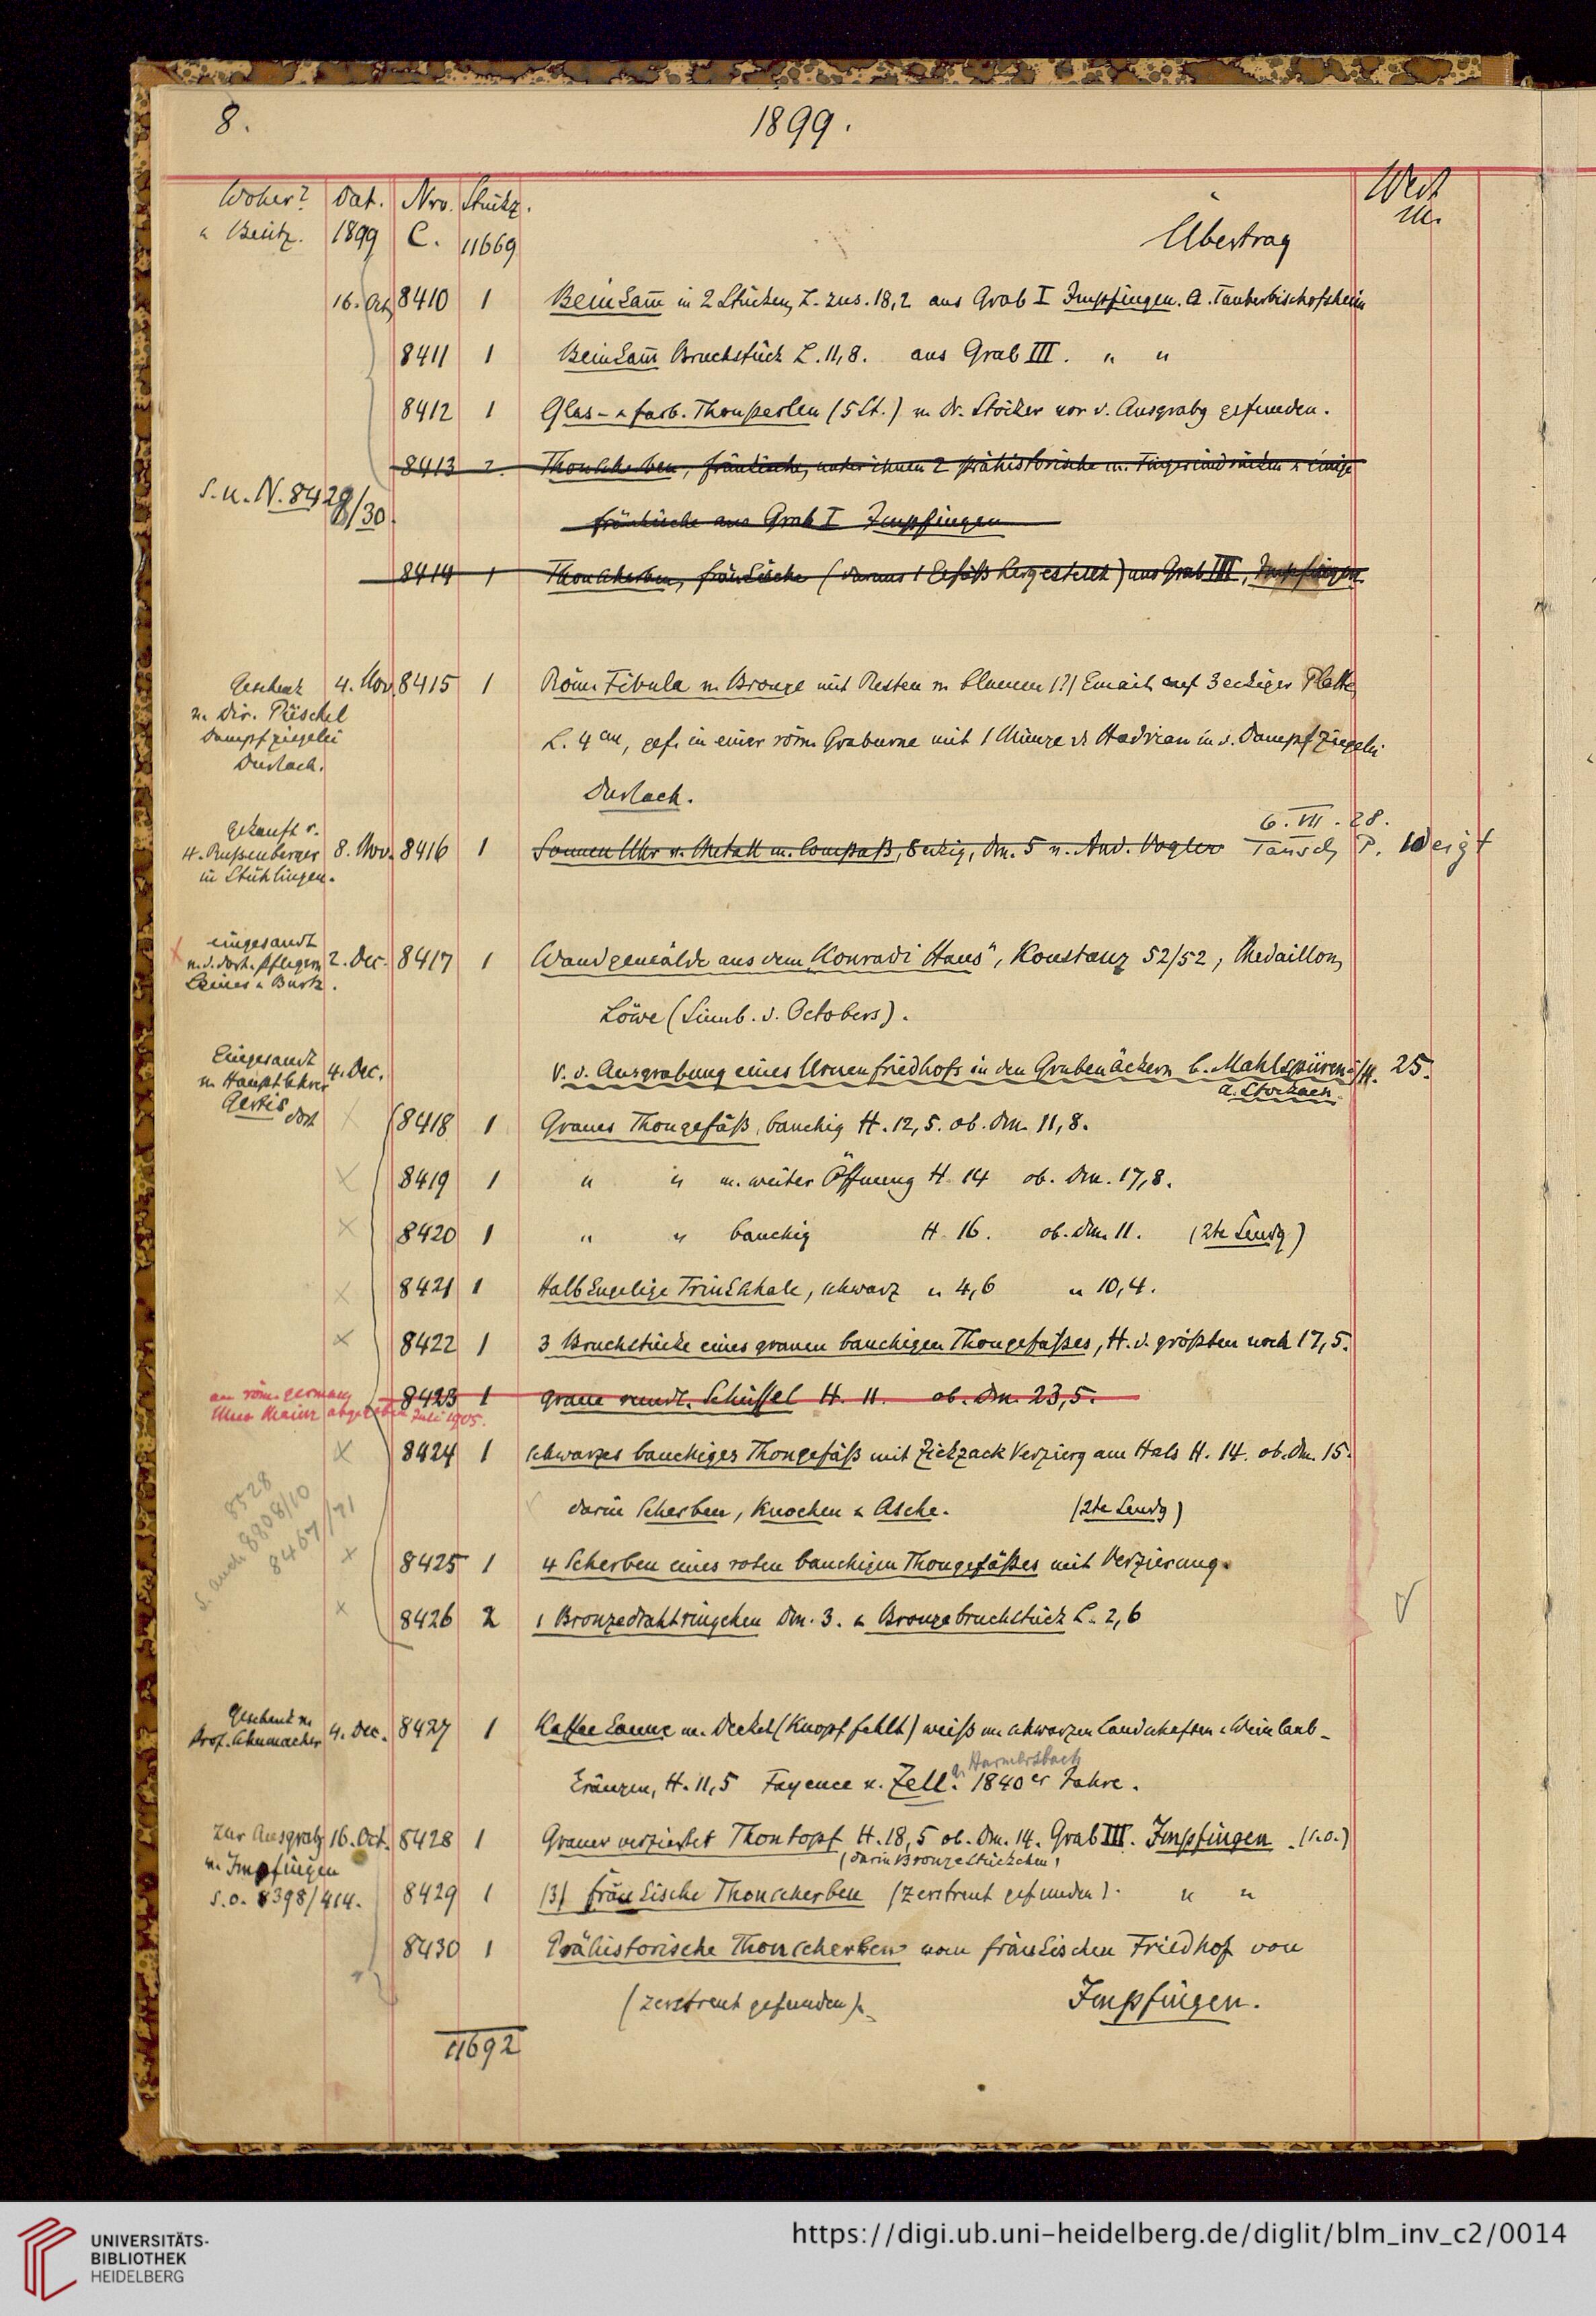 8.
1899.
Woher? Dat. Nro. Stückz. Wert
u Besitz. 1899 C. 11669 Übertrag M.
16. Oct. 8410 1 Beinkam̅ in 2 Stücken, L. zus. 18,2 aus Grab I Impfingen. A. Tauberbischofsheim
8411 1 Beinkam̅ Bruchstück L. 11,8. aus Grab III. " "
8412 1 Glas- u farb. Thonperlen (5 St.) v. Dr. Stöcker vor d. Ausgrabg gefunden.
8413 2. Thonscherben, fränkische, unter ihnen 2 prähistorische m. Fingereindrücken u einige
s. u. N. 8429/30.
fränkische aus Grab I Impfingen
8414 1 Thonscherben, fränkische (daraus 1 Gefäß hergestellt) aus Grab III, Impfingen.
Geschenk 4. Nov. 8415 1 Röm. Fibula v. Bronze mit Resten v. blauem (?) Email auf 3 eckiger Platte
v. Dir. Püschel
Dampfziegelei L. 4 cm, gef. in einer röm. Graburne mit 1 Münze d. Hadrian in d. Dampfziegelei
Durlach.
Durlach.
6. VII. 28.
gekauft v.
H. Rußenberger 8. Nov. 8416 1 Sonnen Uhr v. Metall m. Compaß, 8 eckig, Dm. 5 v. And. Vogler Tausch P. Weigt
in Stühlingen. 10
eingesandt
v. d. dort. Pflegern 2. Dec. 8417 1 Wandgemälde aus dem „Konradi Haus", Konstanz 52/52, Medaillon,
Leiner u Burk.
Löwe (Sinnb. d. Octobers).
Eingesandt
v. Hauptlehrer 4. Dec. V. d. Ausgrabung eines Urnenfriedhofs in den Grubenäckern b. Mahlspüren i/H. 25.
Gersis dort A. Stockach.
8418 1 Graues Thongefäß, bauchig H. 12,5. ob. Dm. 11,8.
8419 1 " " m. weiter Öffnung H. 14 ob. Dm. 17,8.
8420 1 " " bauchig H. 16. ob. Dm. 11. (2te Sendg)
8421 1 Halbkugelige Trinkschale, schwarz " 4,6 " 10,4.
8422 1 3 Bruchstücke eines grauen bauchigen Thongefäßes, H. d. größten noch 17,5.
an röm. german. 8423 1 graue runde Schüssel H. 11. ob. Dm. 23,5.
Mus Mainz abgegeben Juli 1905.
8424 1 schwarzes bauchiges Thongefäß mit Zickzack Verzierg am Hals H. 14. ob. Dm. 15.
darin Scherben, Knochen u Asche. (2te Sendg)
s. auch 8528
8808/10
8467/71
8425 1 4 Scherben eines roten bauchigen Thongefäßes mit Verzierung.
8426 2 1 Bronzedrahtringchen Dm. 3. u Bronzebruchstück L. 2,6
Geschenk v.
Prof. Schumacher 4. Dec. 8427 1 Kaffeekanne m. Deckel (Knopf fehlt) weiß m schwarzen Landschaften u Weinlaub-
a. Harmersbach
kränzen, H. 11,5 Fayence v. Zell. 1840er Jahre.
zur Ausgrabg 16. Oct. 8428 1 Grauer verzierter Thontopf H. 18,5 ob. Dm. 14. Grab III. Impfingen. (s.o.)
v. Impfingen (darin Bronzestückchen)
s. o. 8398/414. 8429 1 (3) fränkische Thonscherben (zerstreut gefunden). " "
8430 1 Prähistorische Thonscherben vom fränkischen Friedhof von
(zerstreut gefunden). Impfingen.
11692
UNIVERSITÄTS-
BIBLIOTHEK
HEIDELBERG
https://digi.ub.uni-heidelberg.de/diglit/blm_inv_c2/0014